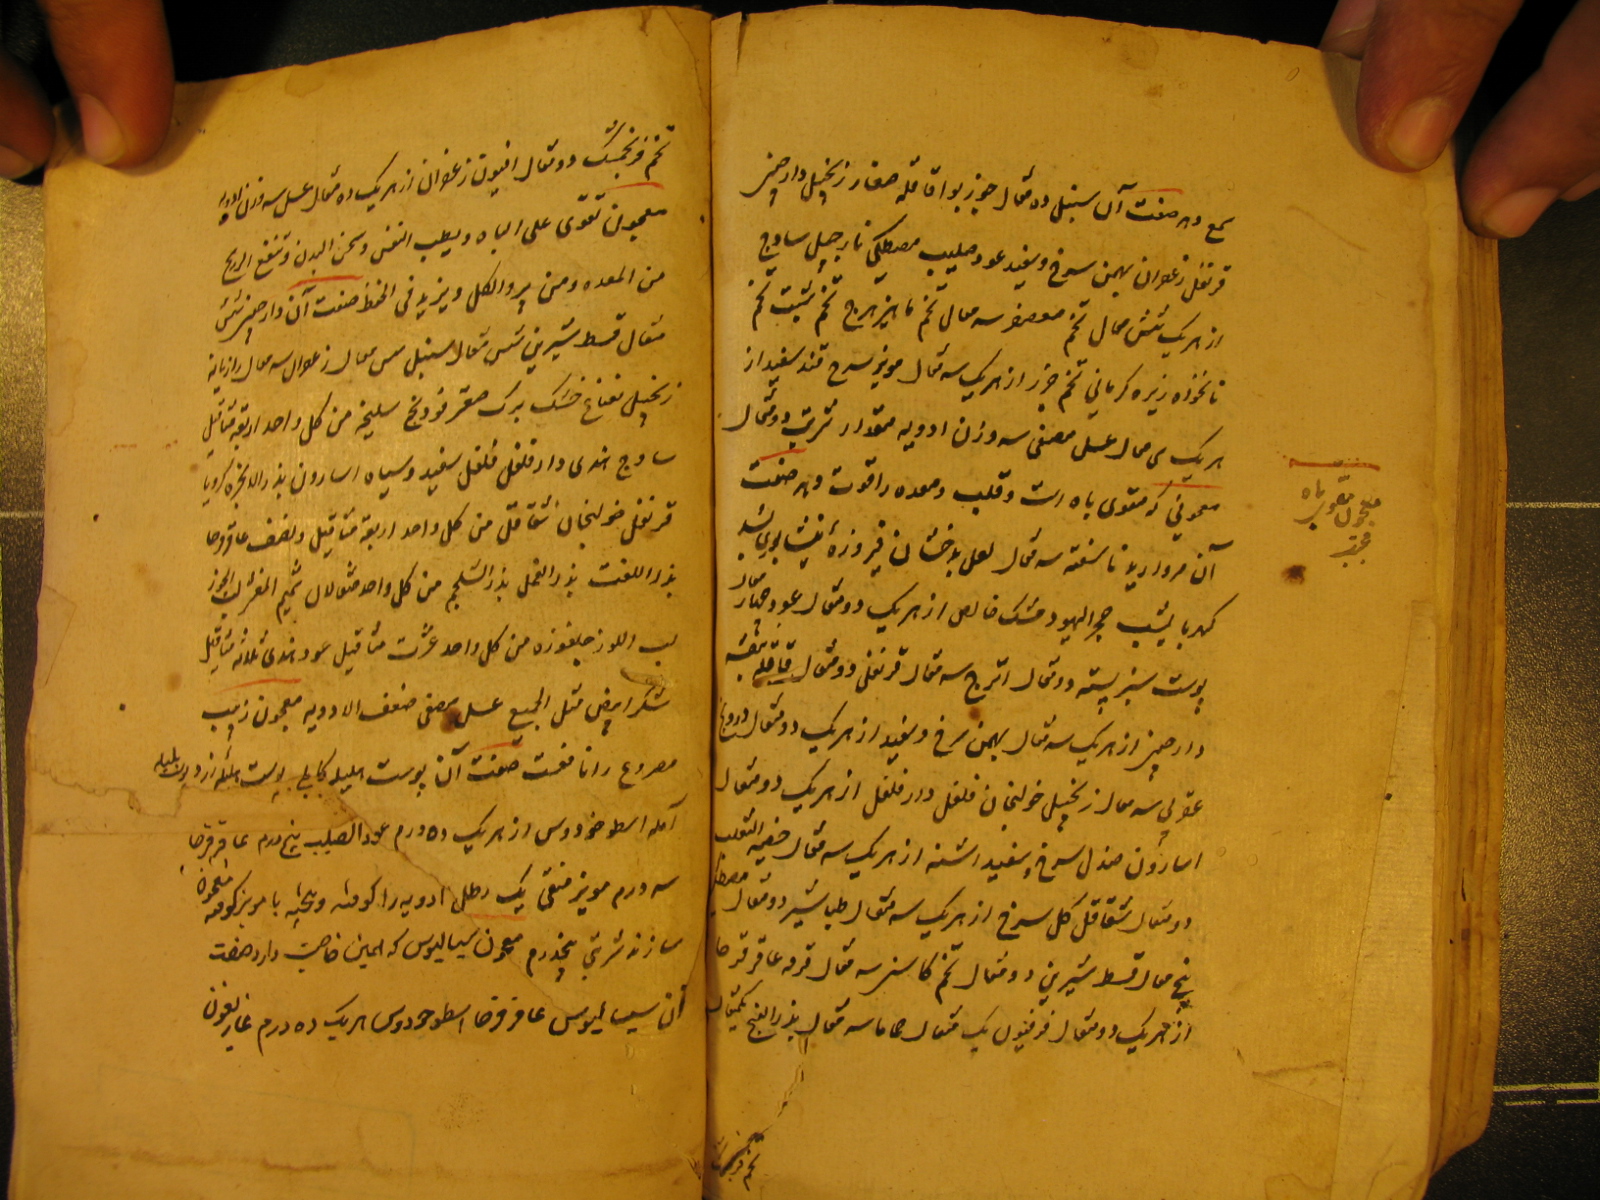 سمع دهد صفت آن سنبل ده مثقال جوز بوا قاقله صغار زنجبیل دارچینی
قرنفل زعفران بهمن سرخ و سفید عود صلیب مصطکی نارجیل ساوج
از هر یک شش مثقال تخم معصفر سه مثقال تخم تخم شبت تخم
نانخواه زیره کرمانی تخم جزر از هر یک سه مثقال مویز سرخ قند سفید از
هر یک سی مثقال عسل مصفی سه وزن ادویه مقدار شربت دو مثقال
معجونی که مقوی باه است و قلب و معده را قوت دهد صفت
آن مروارید ناسفته سه مثقال لعل بدخشان فیروزه نیشابوری بسد
کهربا یشب حجر الیهود مشک خالص از هر یک دو مثقال عود
پوست سبز پسته دو مثقال اترج سه مثقال قرنفل دو مثقال قاقله بنفشه
دارچینی از هر یک سه مثقال بهمن سرخ و سفید از هر یک دو مثقال درونج
عقربی سه مثقال زنجبیل خولنجان فلفل دارفلفل از هر یک دو مثقال
اسارون صندل سرخ و سفید اشنه از هر یک سه مثقال خصیة الثعلب
دو مثقال شقاقل گل سرخ از هر یک سه مثقال طباشیر دو مثقال مصطکی
پنج مثقال قسط شیرین دو مثقال تخم کاسنی سه مثقال قرفه عاقرقرحا
از هر یک دو مثقال فرفیون یک مثقال ماما سه مثقال بذر البنج یکمثقال
تخم فرنجمشک
معجون مقوی باه
مجرب
تخم فرنجمشک دو مثقال افیون زعفران از هر یک ده مثقال عسل سه وزن ادویه
معجون تقوی علی الباه و یطیب النفس و سخن البدن و تنفع الریح
من المعده و من والکل و یزید فی الحفظ صفت آن دارچینی شش
مثقال قسط شیرین شش مثقال سنبل شش مثقال زعفران سه مثقال رازیانه
زنجبیل نعناع خشک برک صعتر فودنج سلیخه من کل واحد اربعة مثاقیل
ساوج هندی دارفلفل فلفل سفید و سیاه اسارون بذر الانجره کرویا
قرنفل خولنجان شقاقل من کل واحد اربعة مثاقیل و نصف عاقرقرحا
بذر اللفت بذر الفجل بذر الشلجم من کل واحد مثقالان لب الجوز
لب اللوز جلغوزه من کل واحد عشرت مثاقیل عود هندی ثلاثه مثاقیل
شکر ابیض مثل الجمیع عسل مصفی ضعف الادویه معجون زبیب
مصروع را نافعست صفت آن پوست هلیله کابلی پوست هلیله زرد پوست بلیله
آمله اسطوخودوس از هر یک ده درم عود الصلیب پنج درم عاقرقرحا
سه درم مویز منقی یک رطل ادویه را کوفته و بیخته با مویز کوفته معجون
سازند شربتی پنجدرم معجون سیسالیوس که همین خاصیت دارد صفت
آن سیسالیوس عاقرقرحا اسطوخودوس هر یک ده درم غاریقون